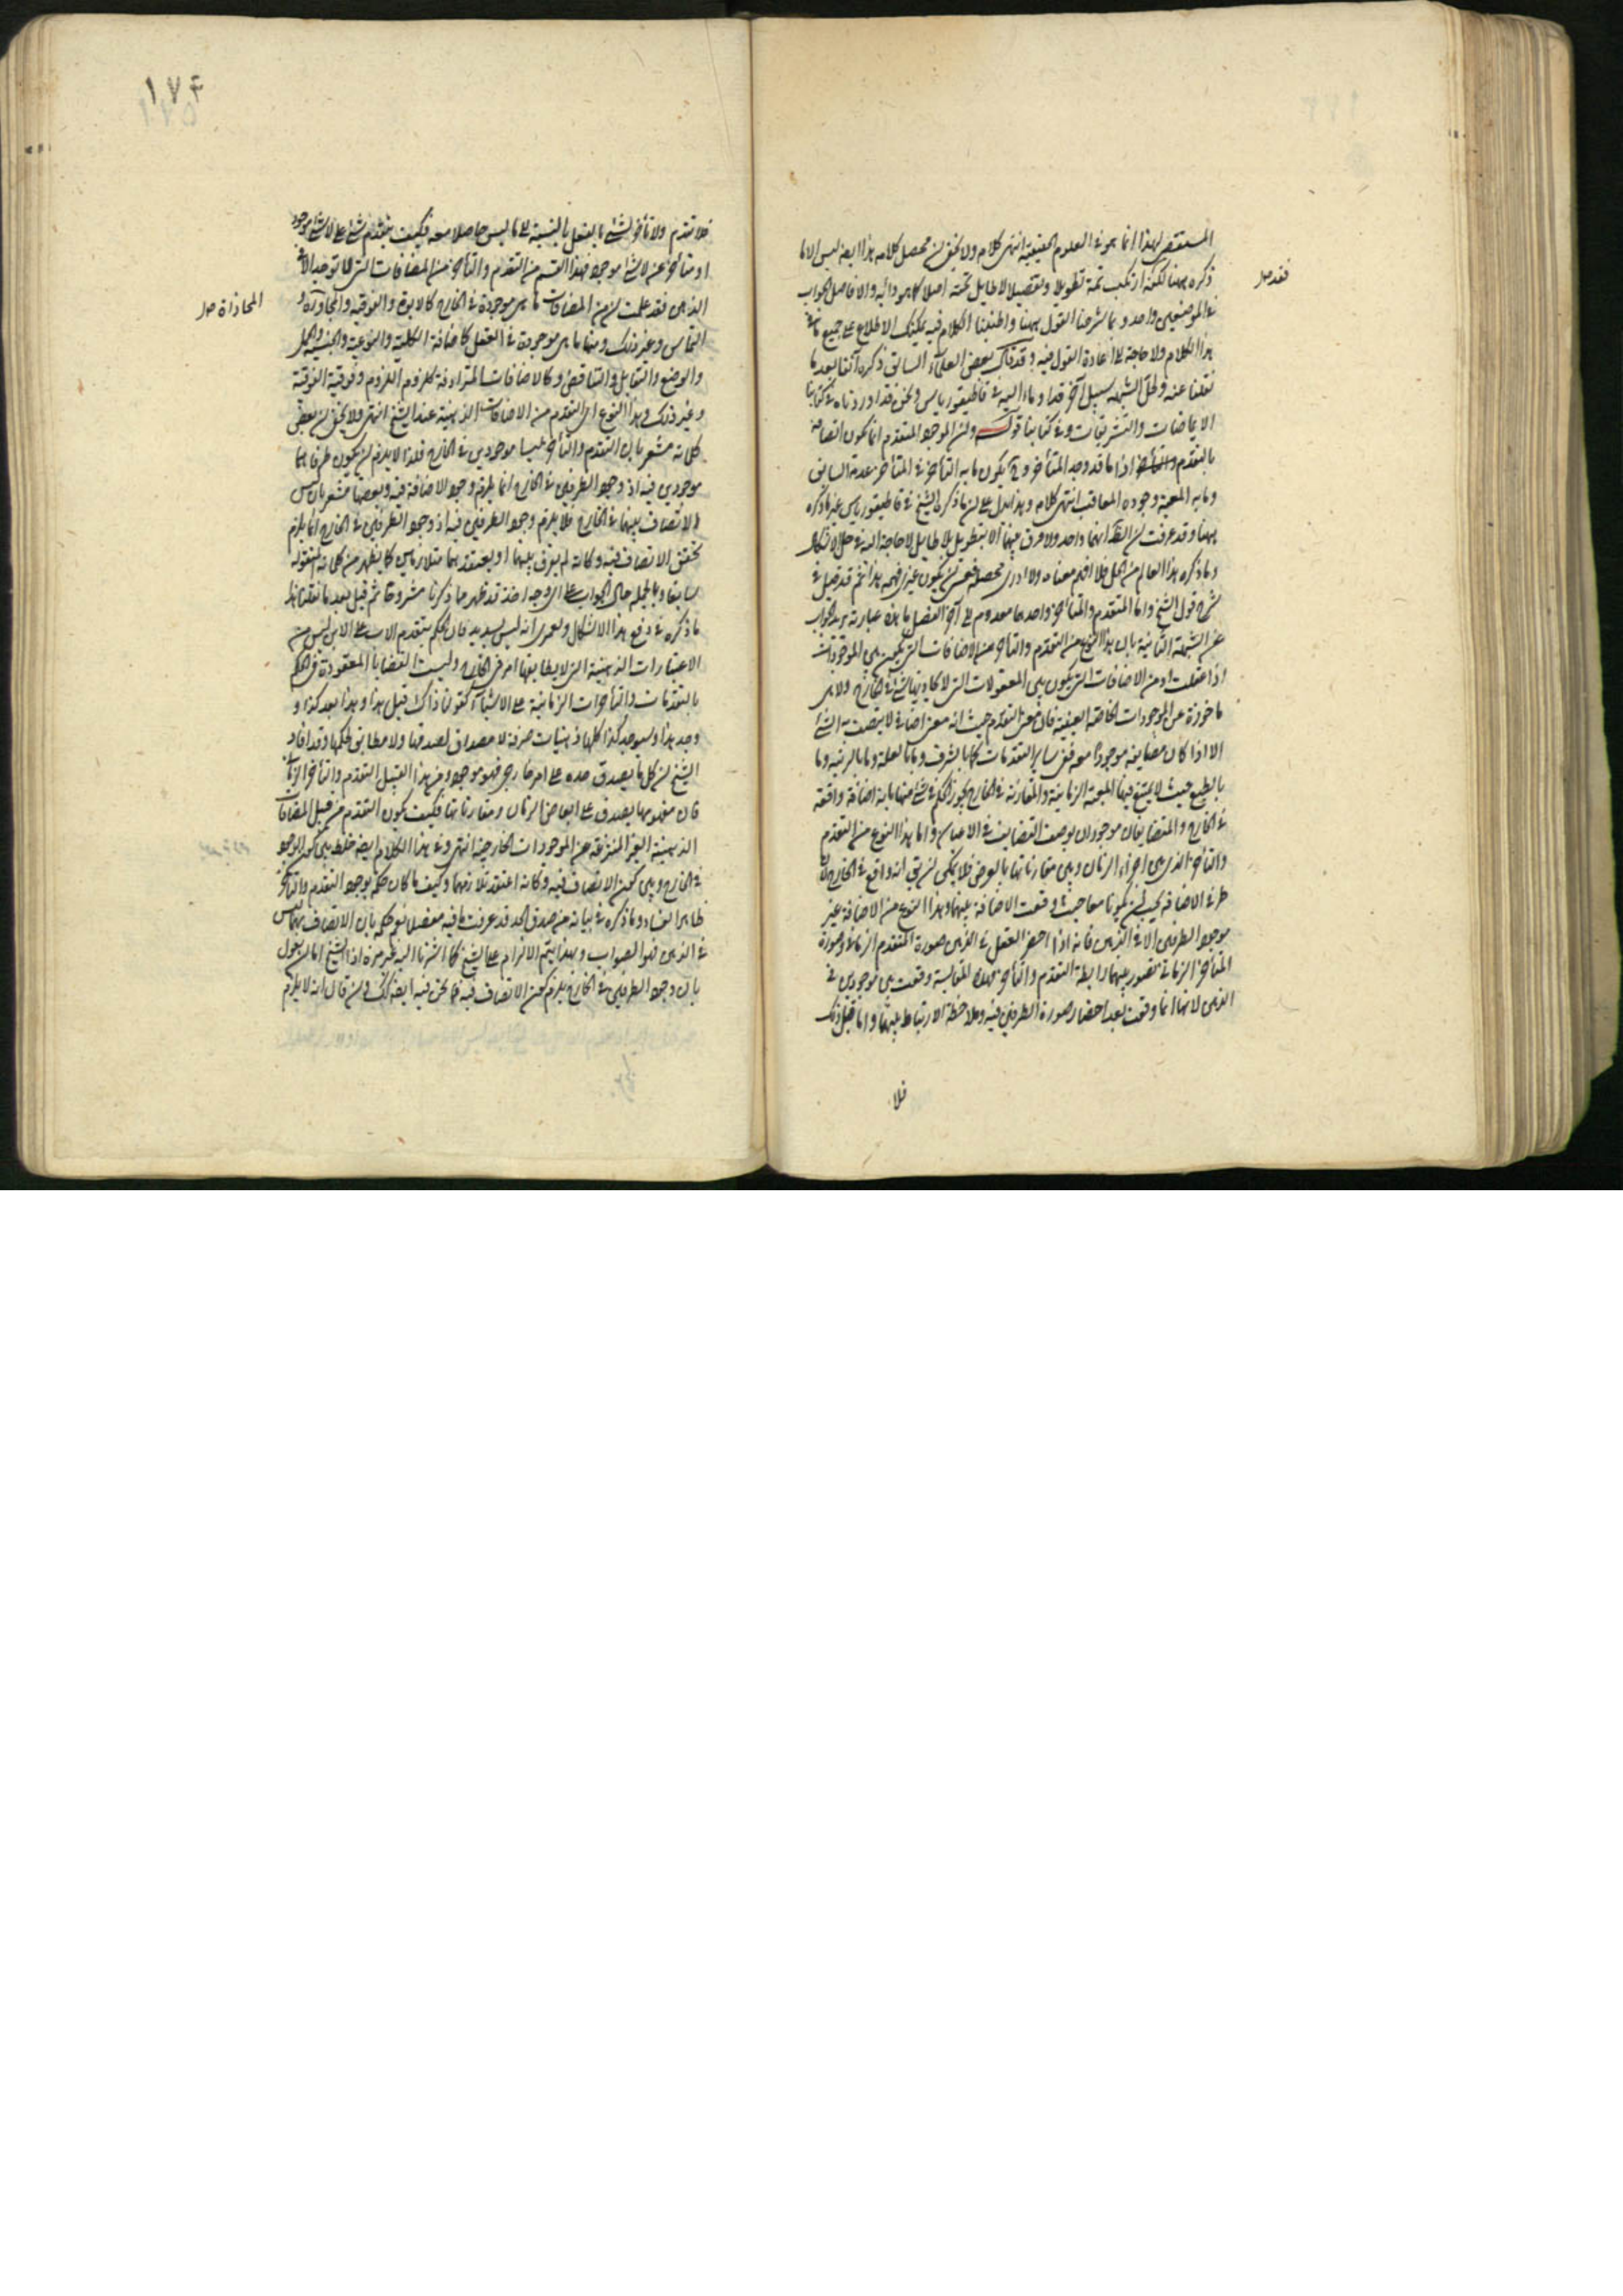 المستقصى لهذا انما هو فى العلوم الحقيقية انتهى كلامه ولا يخفى ان محصل كلامه هذا ايضا ليس الا ما
ذكره ههنا لكنه ارتكب ثمة تطويلا وتفصيلا لا طايل تحته اصلا كما هو دابه والا فاصل الجواب
فقد صل
فى الموضعين واحد وبما شرحنا القول ههنا واطنبنا الكلام فيه يمكنك الاطلاع على جميع ما فى
هذا الكلام ولا حاجة الى اعادة القول فيه وقد قال بعض العلماء السابق ذكره آنفا بعد ما
نقلنا عنه ولحل الشبهة سبيل آخر قد اوماء اليه فى قاطيغورياس ونحن قد اوردناه فى كتابنا
الايماضات والتشريقات وفى كتابنا قوله وان الموجود المتقدم انما يكون اتصافه
بالتقدم والتأخر اذا ما قد وجد المتأخر وح يكون ما به التأخر فى المتأخر عدمة السابق
وما به المعية وجوده المعاقب انتهى كلامه وهذا يدل على ان ما ذكره الشيخ فى قاطيغورياس غير ما ذكره
ههنا وقد عرفت ان الظ انهما واحد ولا فرق بينهما الا بتطويل بلا طايل لا حاجة اليه فى حل الاشكال
وما ذكره هذا العالم من الحل فلا افهم معناه ولا ادرى محصله فعسى ان يكون غيرى فهمه هذا ثم قد قيل فى
شرح قول الشيخ واما المتقدم والمتأخر واحدهما معدوم الى آخر الفصل ما هذه عبارته يريد الجواب
عن الشبهة الثانية بان هذا النوع من التقدم والتأخر من الاضافات التى تكون بين الموجودات
اذا عقلت او من الاضافات التى يكون بين المعقولات التى لا يحاذيها شئ فى الخارج ولا هى
ماخوذة عن الموجودات الخاصة العينية فان معنى التقدم حيث انه معنى اضافى لا يتصف به الشئ
الا اذا كان مضايفه موجودا معه ففى ساير التقدمات كما بالشرف وما بالعلة وما بالرتبه وما
بالطبع حيث لا يمتنع فيها المعية الزمانية والمقارنة فى الخارج يجوز الحكم فى شئ منها بانه اضافة واقعة
فى الخارج والمتضايفان موجودان بوصف التضايف فى الاعيان واما هذا النوع من التقدم
والتأخر الذى بين اجزاء الزمان وبين مقارناتها بالعرض فلا يمكن ان يق انه واقع فى الخارج لان
طرفى الاضافة يجب ان يكونا معا حيث وقعت الاضافة بينهما وهذا النوع من الاضافة غير
موجود الطرفين الا فى الذهن فانه اذا احضر العقل فى الذهن صورة المتقدم الزمانى وصورة
المتأخر الزمانى تصور بينهما رابطة التقدم والتأخر فهذه المقايسة وقعت بين موجودين فى
الذهن لانها انما وقعت بعد احضار صورة الطرفين فيه وملاحظة الارتباط بينهما واما قبل ذلك
فلا
١٧۴
فلا تقدم ولا تأخر لشئ بالفعل بالنسبة الى ما ليس حاصلا معه فكيف يتقدم شئ على لا شئ موجود
او متأخر عن لا شئ موجود فهذا القسم من التقدم والتأخر من المضافات التى لا توجد الا فى
الذهن فقد علمت ان من المضافات ما هى موجودة فى الخارج كالابوة والفوقية والمجاورة و
المحاذاة صل
التماس وغير ذلك ومنها ما هى موجودة فى العقل كاضافة الكلية والنوعية والجنسية والحمل
والوضع والتقابل والتناقض وكالاضافات المترادفة كلزوم اللزوم وفوقية الفوقية
وغير ذلك وهذا النوع اى التقدم من الاضافات الذهنية عند الشيخ انتهى ولا يخفى ان بعض
كلماته مشعر بان التقدم والتأخر ليسا موجودين فى الخارج فلذا لا يلزم ان يكون طرفاهما
موجودين فيه اذ وجود الطرفين فى الخارج انما يلزمه وجود الاضافة فيه وبعضها مشعر بان ليس
الاتصاف بهما فى الخارج فلا يلزم وجود الطرفين فيه اذ وجود الطرفين فى الخارج انما يلزم
تحقق الاتصاف فيه وكانه لم يفرق بينهما او يعتقد بهما متلازمين كما يظهر من كلماته المنقولة
سابقا وبالجملة حال الجواب على اى وجه اخذ قد ظهر مما ذكرنا مشروحا ثم قيل بعد ما نقلنا هذا
ما ذكره فى دفع هذا الاشكال ولعمرى انه ليس بسديد فان الحكم بتقدم الاب على الابن ليس من
الاعتبارات الذهنية التى لا يطابقها امر فى الخارج وليست القضايا المعقودة فى الحكم
بالتقدمات والتأخرات الزمانية على الاشياء كقولنا ذاك قبل هذا وهذا بعد كذا و
وجد هذا وسيوجد كذا كلها ذهنيات صرفة لا مصداق لصدقها ولا مطابق لحكمها وقد افاد
الشيخ ان كل ما يصدق حده على امر خارجى فهو موجود ومن هذا القبيل التقدم والتأخر الزمانى
فان مفهومها يصدق على ابعاض الزمان ومقارناتها فكيف يكون التقدم من قبيل المضافات
الذهنية الغير المنتزعة عن الموجودات الخارجية انتهى وفى هذا الكلام ايضا خلط بين كون الوجود
فى الخارج وبين كون الاتصاف فيه وكانه اعتقد تلازمهما وكيف ما كان حكم بوجود التقدم والتأخر
ظاهر الفساد وما ذكره فى بيانه من صدق الحد قد عرفت ما فيه مفصلا نعم حكمه بان الاتصاف بهما ليس
فى الذهن هو الصواب وبهذا يتم الالزام على الشيخ كما اشرنا اليه غير مرة اذ الشيخ اما ان يقول
بان وجود الطرفين فى الخارج يلزم كون الاتصاف فيه فما نحن فيه ايضا كذلك وان قال انه لا يلزم